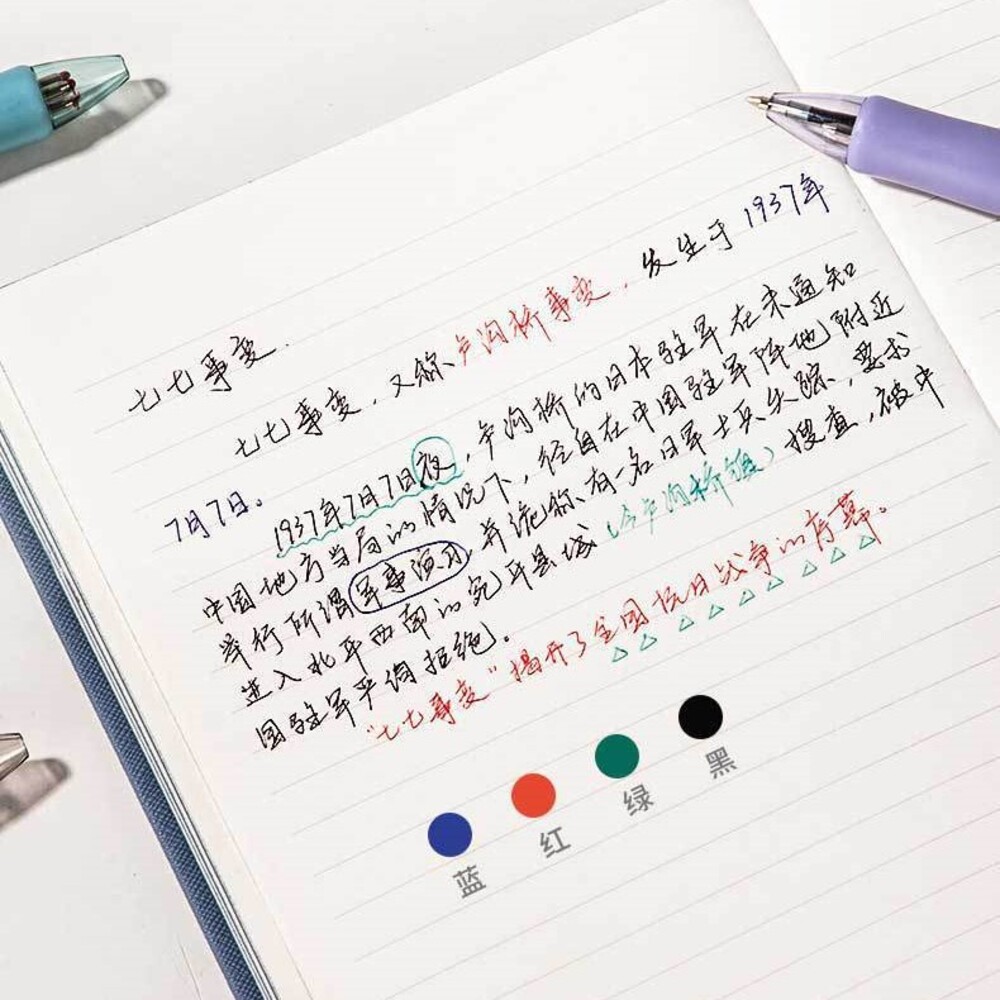 七七事变.
七七事变，又称卢沟桥事变，发生于1937年
7月7日。
1937年7月7日夜，卢沟桥的日本驻军在未通知
中国地方当局的情况下，径自在中国驻军阵地附近
举行所谓军事演习，并诡称有一名日军士兵失踪，要求
进入北平西南的宛平县城（今卢沟桥镇）搜查，被中
国驻军严词拒绝。
“七七事变”揭开了全国抗日战争的序幕。
蓝 红 绿 黑